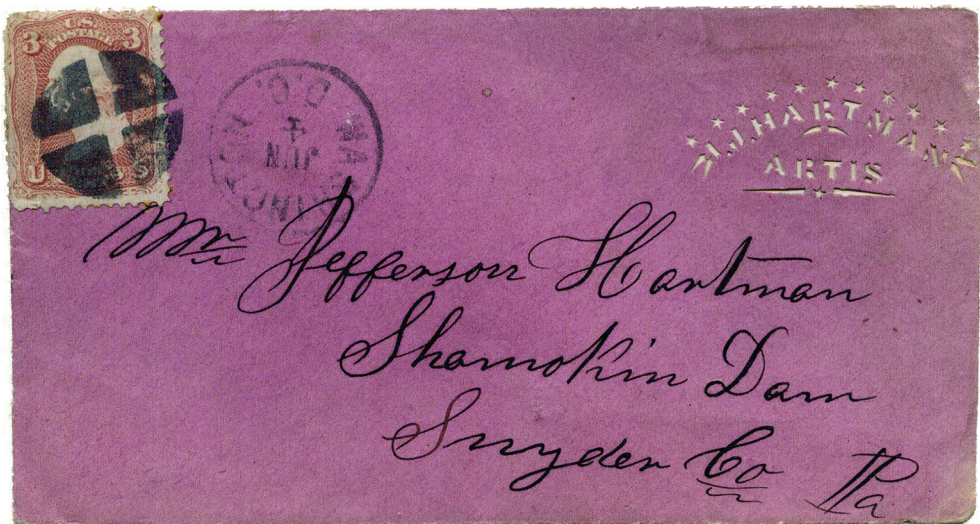 3 U.S. 3
POSTAGE
U S
WASHINGTON
D.C.
JUN
4
J. HARTMAN
ARTIS
Mr Jefferson Hartman
Shamokin Dam
Snyder Co Pa